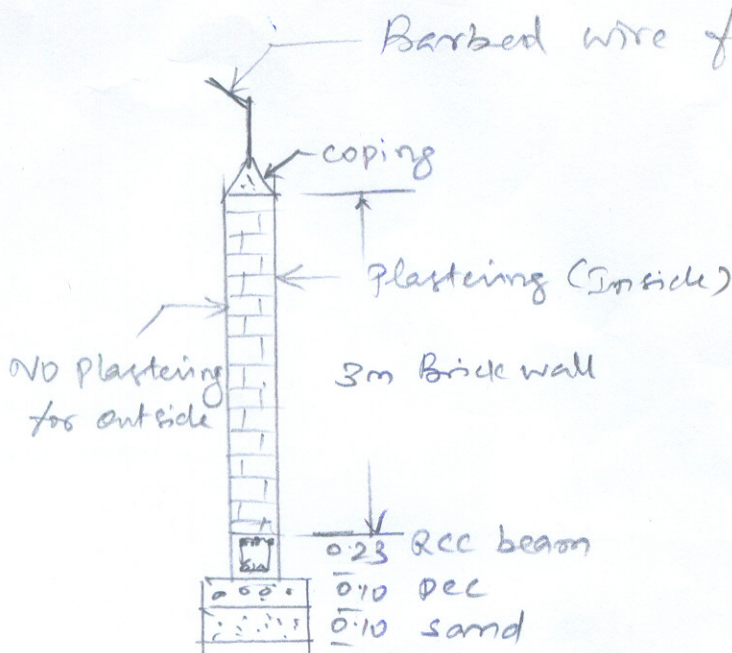 Barbed wire f
coping
Plastering (Inside)
NO Plastering
for outside
3m Brick wall
0.23 RCC beam
0.10 PCC
0.10 sand